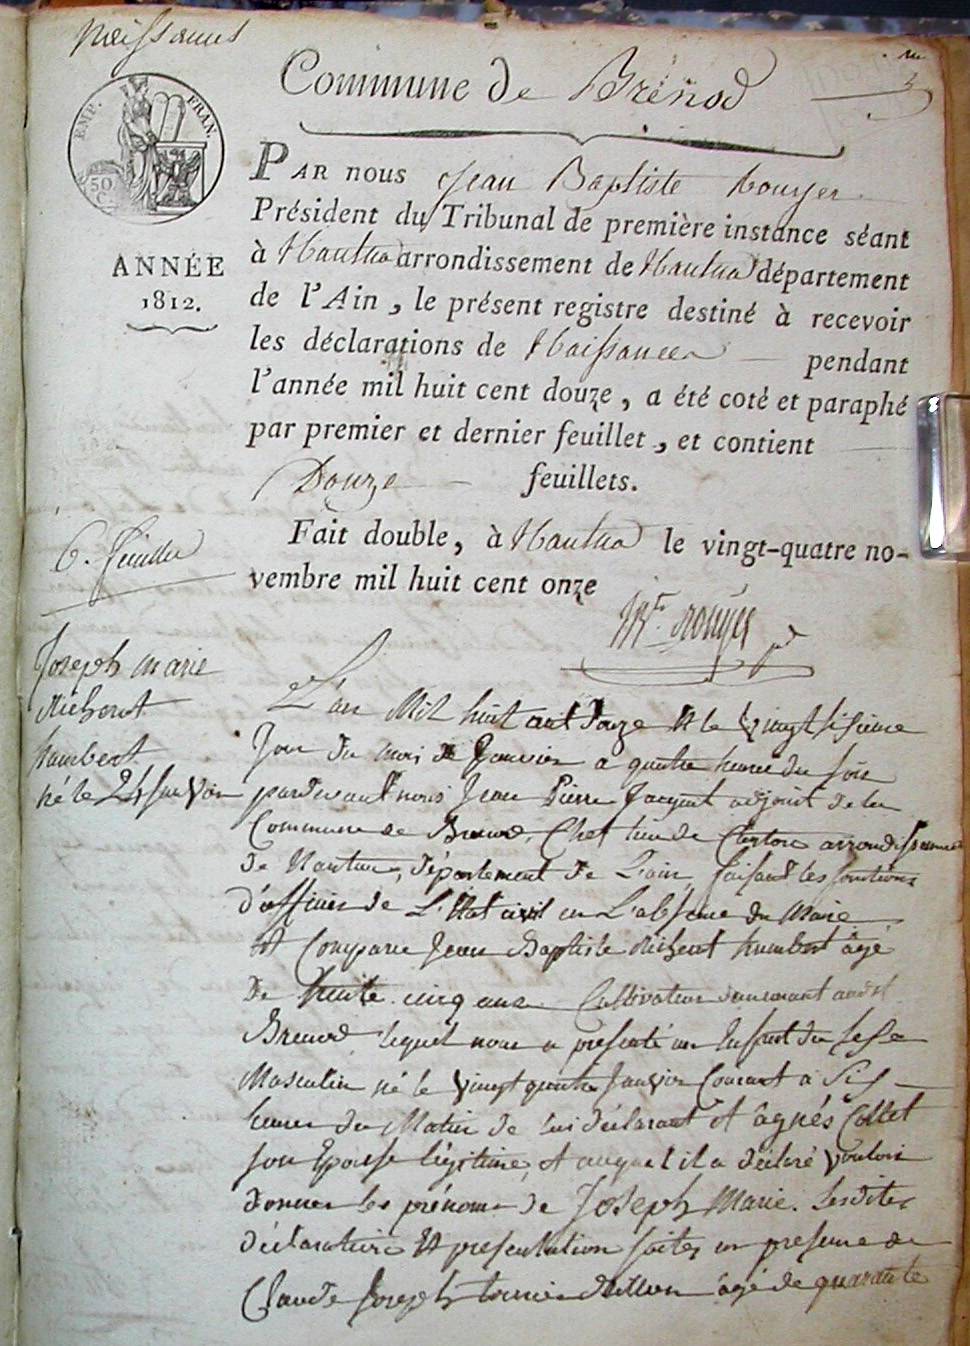 Naissances
Commune de Brénod
EMP. FRAN.
50.
C.
PAR nous Jean Baptiste Rouyer
Président du Tribunal de première instance séant
à Nantua arrondissement de Nantua département
de l'Ain, le présent registre destiné à recevoir
les déclarations de Naissances pendant
l'année mil huit cent douze, a été coté et paraphé
par premier et dernier feuillet, et contient
Douze feuillets.
Fait double, à Nantua le vingt-quatre no-
vembre mil huit cent onze
ANNÉE
1812.
6. feuillet
Rouyer
Joseph Marie
Richerot
humbert
né le 24 Janvier
L'an Mil huit cent Douze Et le vingt sixieme
Jour du mois de Janvier a quatre heures du soir
pardevant nous Jean Pierre Jacquet adjoint de la
Commune de Brenod, Chef lieu de Canton arrondissement
de Nantua, département de L'ain, faisant les fonctions
d'officier de L'Etat civil en L'absence du Maire
Et Comparu Jean Baptiste Richerot humbert âgé
De trente cinq ans Cultivateur demeurant audit
Brenod lequel nous a presenté un Enfant du sexe
Masculin né le vingt quatre Janvier Courant a Six
heures du Matin de lui déclarant et agnés Collet
son Epouse légitime, et auquel il a déclaré vouloir
donner les prénoms de Joseph Marie. Lesdites
déclaration Et presentation faites en presence de
Claude Joseph âgé de quarante